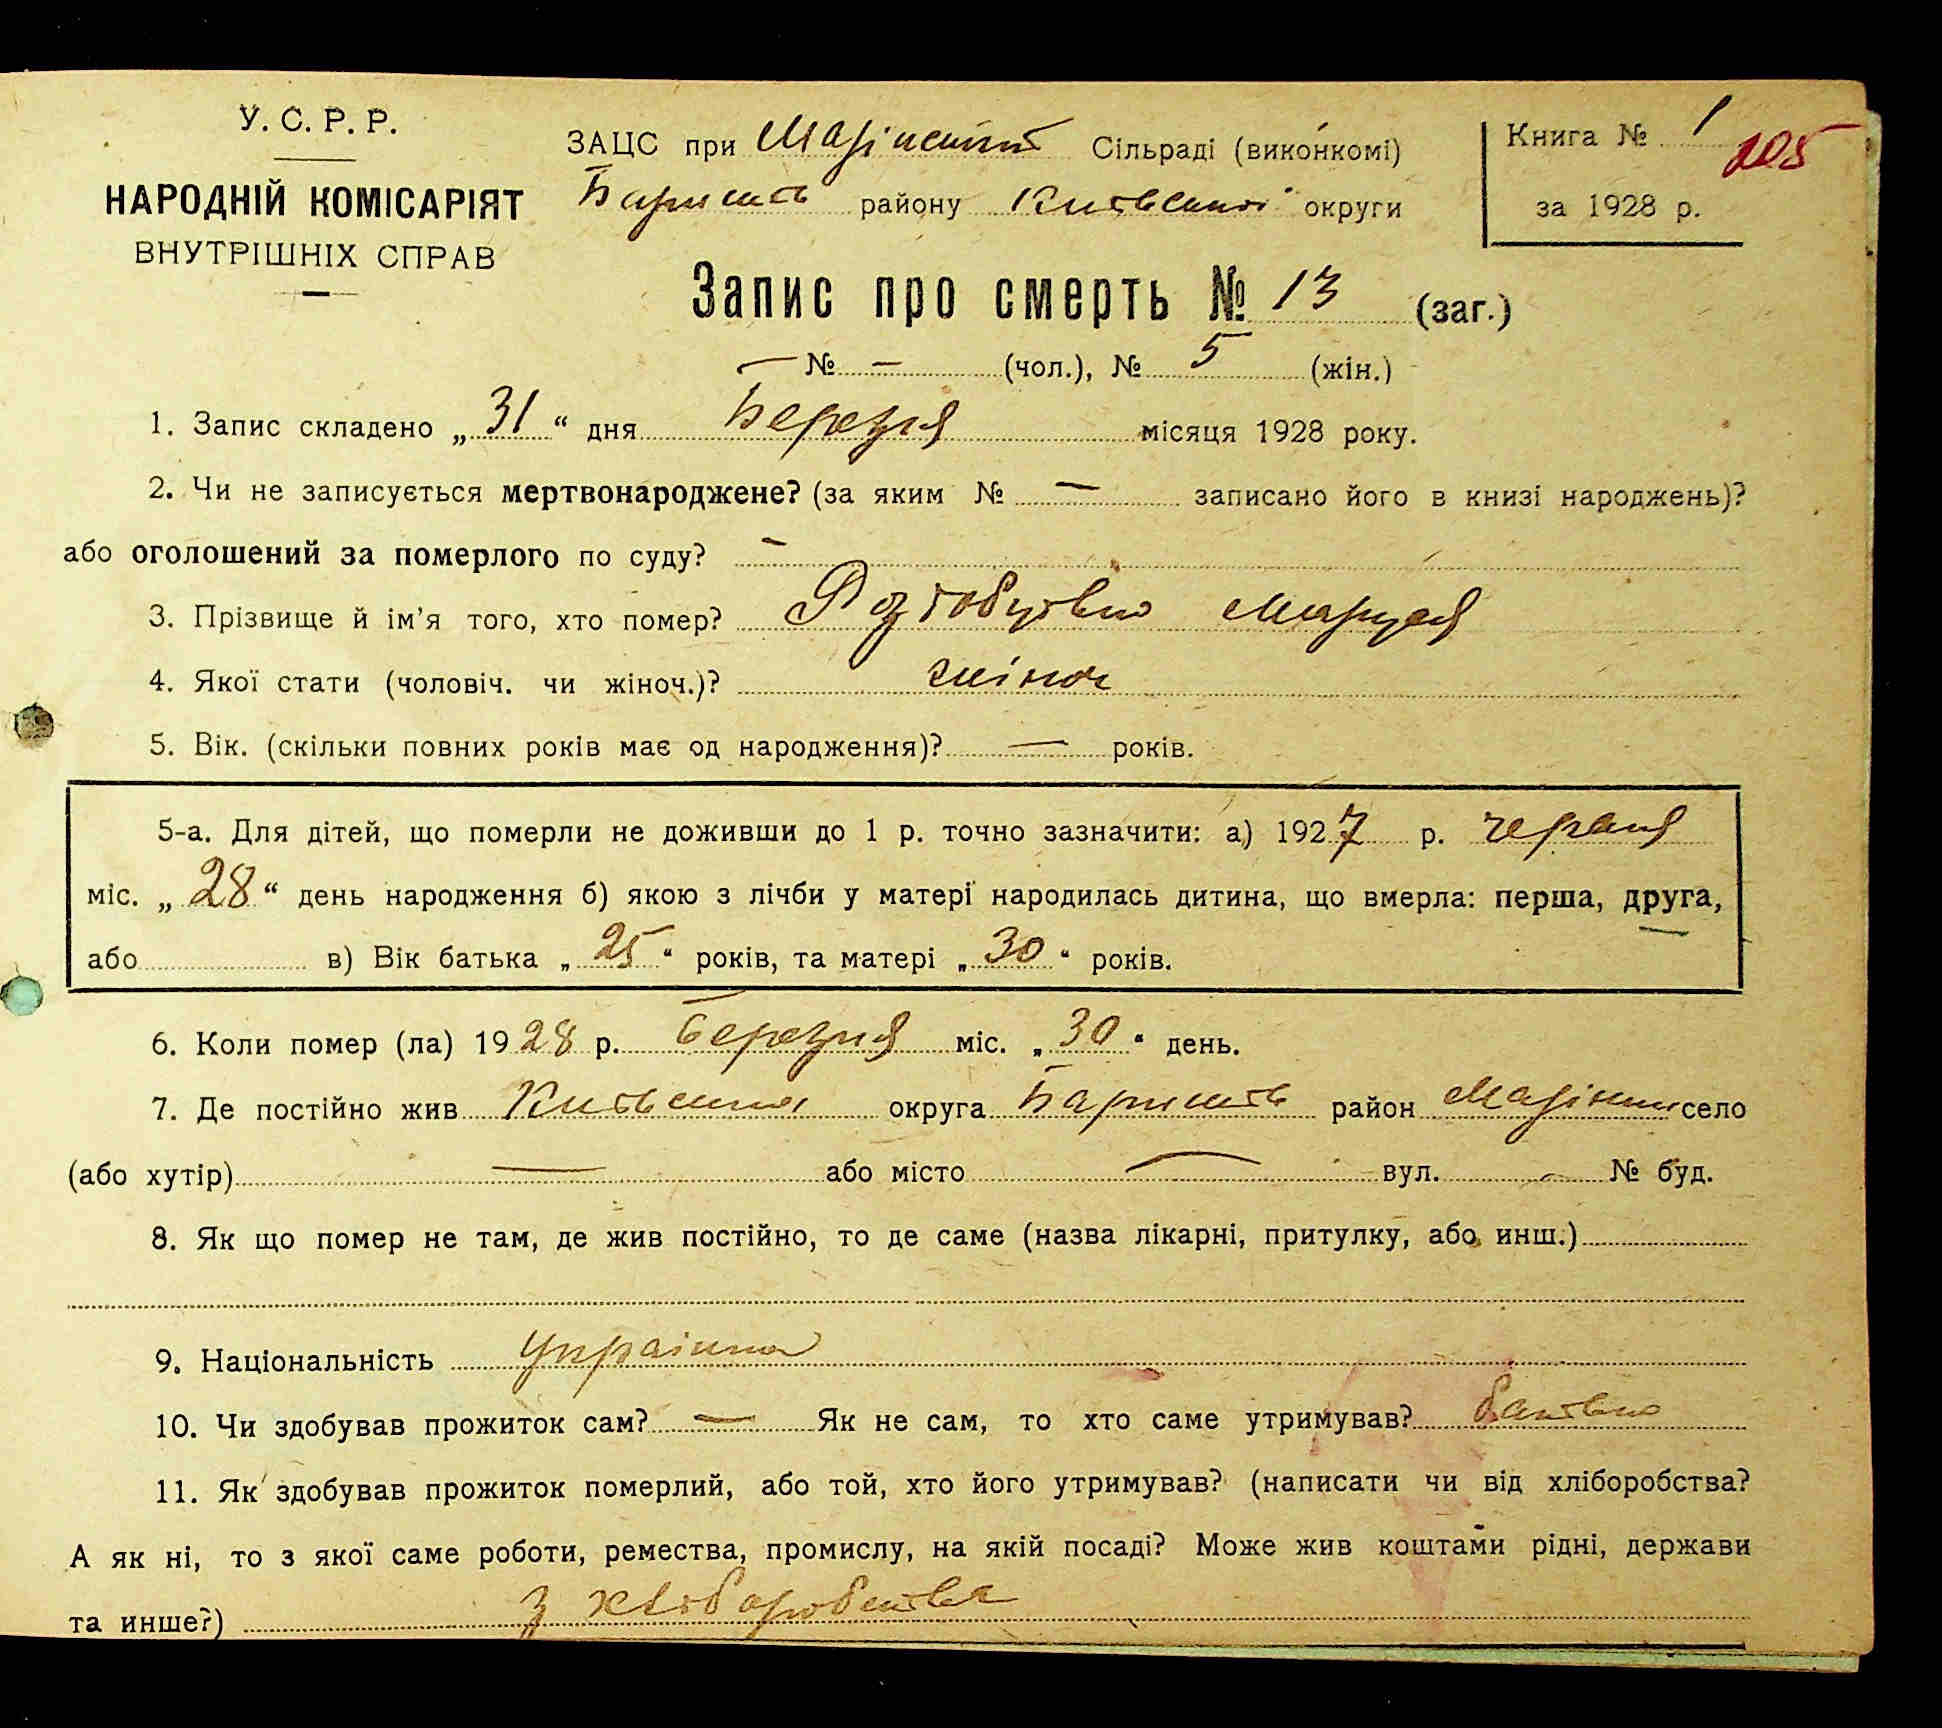 У. С. Р. Р.
НАРОДНІЙ КОМІСАРІЯТ
ВНУТРІШНІХ СПРАВ
ЗАЦС при Сільраді (виконкомі)
району Київської округи
Книга № 1
205
за 1928 р.
Запис про смерть № 13 (заг.)
№ — (чол.), № 5 (жін.)
1. Запис складено „31“ дня Березня місяця 1928 року.
2. Чи не записується мертвонароджене? (за яким № — записано його в книзі народжень)?
або оголошений за померлого по суду? —
3. Прізвище й ім'я того, хто помер? Маруся
4. Якої стати (чоловіч. чи жіноч.)? жіноч
5. Вік. (скільки повних років має од народження)? — років.
5-а. Для дітей, що померли не доживши до 1 р. точно зазначити: а) 1927 р. червня
міс. „28“ день народження б) якою з лічби у матері народилась дитина, що вмерла: перша, друга,
або в) Вік батька „25“ років, та матері „30“ років.
6. Коли помер (ла) 1928 р. березня міс. „30“ день.
7. Де постійно жив Київська округа район село
(або хутір) — або місто — вул. — № буд.
8. Як що помер не там, де жив постійно, то де саме (назва лікарні, притулку, або инш.)
9. Національність Українка
10. Чи здобував прожиток сам? — Як не сам, то хто саме утримував? батько
11. Як здобував прожиток померлий, або той, хто його утримував? (написати чи від хліборобства?
А як ні, то з якої саме роботи, ремества, промислу, на якій посаді? Може жив коштами рідні, держави
та инше?) з хліборобства